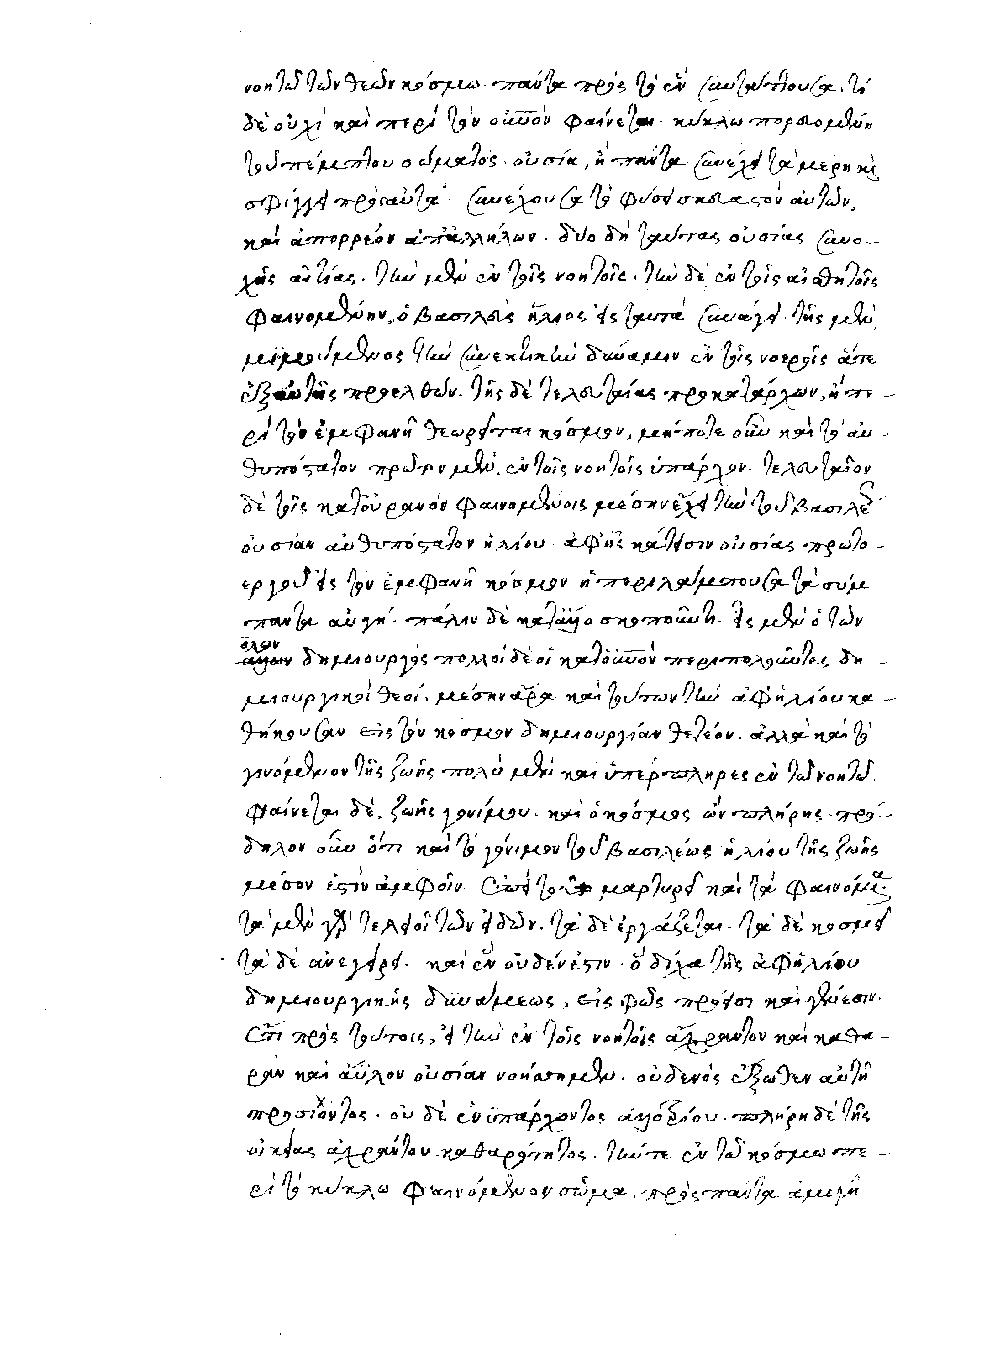 νοητῶ τῶν θεῶν κόσμω πάντα πρὸς τὸ ἓν συντάττουσα. τί
δὲ οὐχὶ καὶ περὶ τὸν οὐνὸν φαίνεται κύκλω πορευομένη
τοῦ πέμπτου σώματος οὐσία, ἣ πάντα συνέχει τὰ μέρη καὶ
σφίγγει πρὸς αὐτὰ συνέχουσα τὸ φύσει σκεδαστὸν αὐτῶν,
καὶ ἀπορρέον ἀπ' ἀλλήλων. δύο δὴ ταύτας οὐσίας συνο-
χῆς αἰτίας. τὴν μὲν ἐν τοῖς νοητοῖς. τὴν δὲ ἐν τοῖς αἰσθητοῖς
φαινομένην, ὁ βασιλεὺς ἥλιος εἰς ταυτὰ συνάγει. τῆς μὲν
μιμούμενος τὴν συνεκτικὴν δύναμιν ἐν τοῖς νοεροῖς ἅτε
ἐξ αὐτῆς προελθών. τῆς δὲ τελευταίας προκατάρχων, ἣ πε-
ρὶ τὸν ἐμφανῆ θεωρεῖται κόσμον, μήποτε οὖν καὶ τὸ αὐ-
θυπόστατον πρῶτον μὲν, ἐν τοῖς νοητοῖς ὑπάρχον. τελευταῖον
δὲ τοῖς κατ' οὐρανὸν φαινομένοις μέσην ἔχει τὴν τοῦ βασιλέως
οὐσίαν αὐθυπόστατον ἡλίου. ἀφ' ἧς κάτεισιν οὐσίας πρωτο-
εργοῦ εἰς τὸν ἐμφανῆ κόσμον ἡ περιλάμπουσα τὰ σύμ
παντα αὐγή. πάλιν δὲ κατ' ἄλλο σκοποῦντι. εἷς μὲν ὁ τῶν
ὅλων
δημιουργὸς πολλοὶ δὲ οἱ κατ' οὐνὸν περιπολοῦντες δη-
μιουργικοὶ θεοί. μέσην ἄρα καὶ τούτων τὴν ἀφ' ἡλίου κα-
θήκουσαν εἰς τὸν κόσμον δημιουργίαν θετέον. ἀλλὰ καὶ τὸ
γινόμενον τῆς ζωῆς πολὺ μὲν καὶ ὑπέρπληρες ἐν τῶ νοητῶ.
φαίνεται δὲ. ζωῆς γονίμου. καὶ ὁ κόσμος ὢν πλήρης πρό-
δηλον οὖν ὅτι καὶ τὸ γόνιμον τοῦ βασιλέως ἡλίου τῆς ζωῆς
μέσον ἐστὶν ἀμφοῖν. ἐπεὶ τούτω μαρτυρεῖ καὶ τὰ φαινόμενα
τὰ μὲν γὰρ τελειοῖ τῶν εἰδῶν. τὰ δὲ ἐργάζεται. τὰ δὲ κοσμεῖ
τὰ δὲ ἀνεγείρει. καὶ ἓν οὐδέν ἐστιν ὃ δίχα τῆς ἀφ' ἡλίου
δημιουργικῆς δυνάμεως, εἰς φῶς πρόεισι καὶ γένεσιν.
ἔτι πρὸς τούτοις, εἰ τὴν ἐν τοῖς νοητοῖς ἄχραντον καὶ καθα-
ρὰν καὶ ἄϋλον οὐσίαν νοήσαιμεν. οὐδενὸς ἔξωθεν αὐτῆ
προσιόντος. οὐδὲ ἐνυπάρχοντος ἀλλοτρίου. πλήρη δὲ τῆς
οἰκείας ἀχράντου καθαρότητος. τήν τε ἐν τῶ κόσμω πε-
ρὶ τὸ κύκλω φαινόμενον σῶμα. πρὸς πάντα ἀμιγῆ